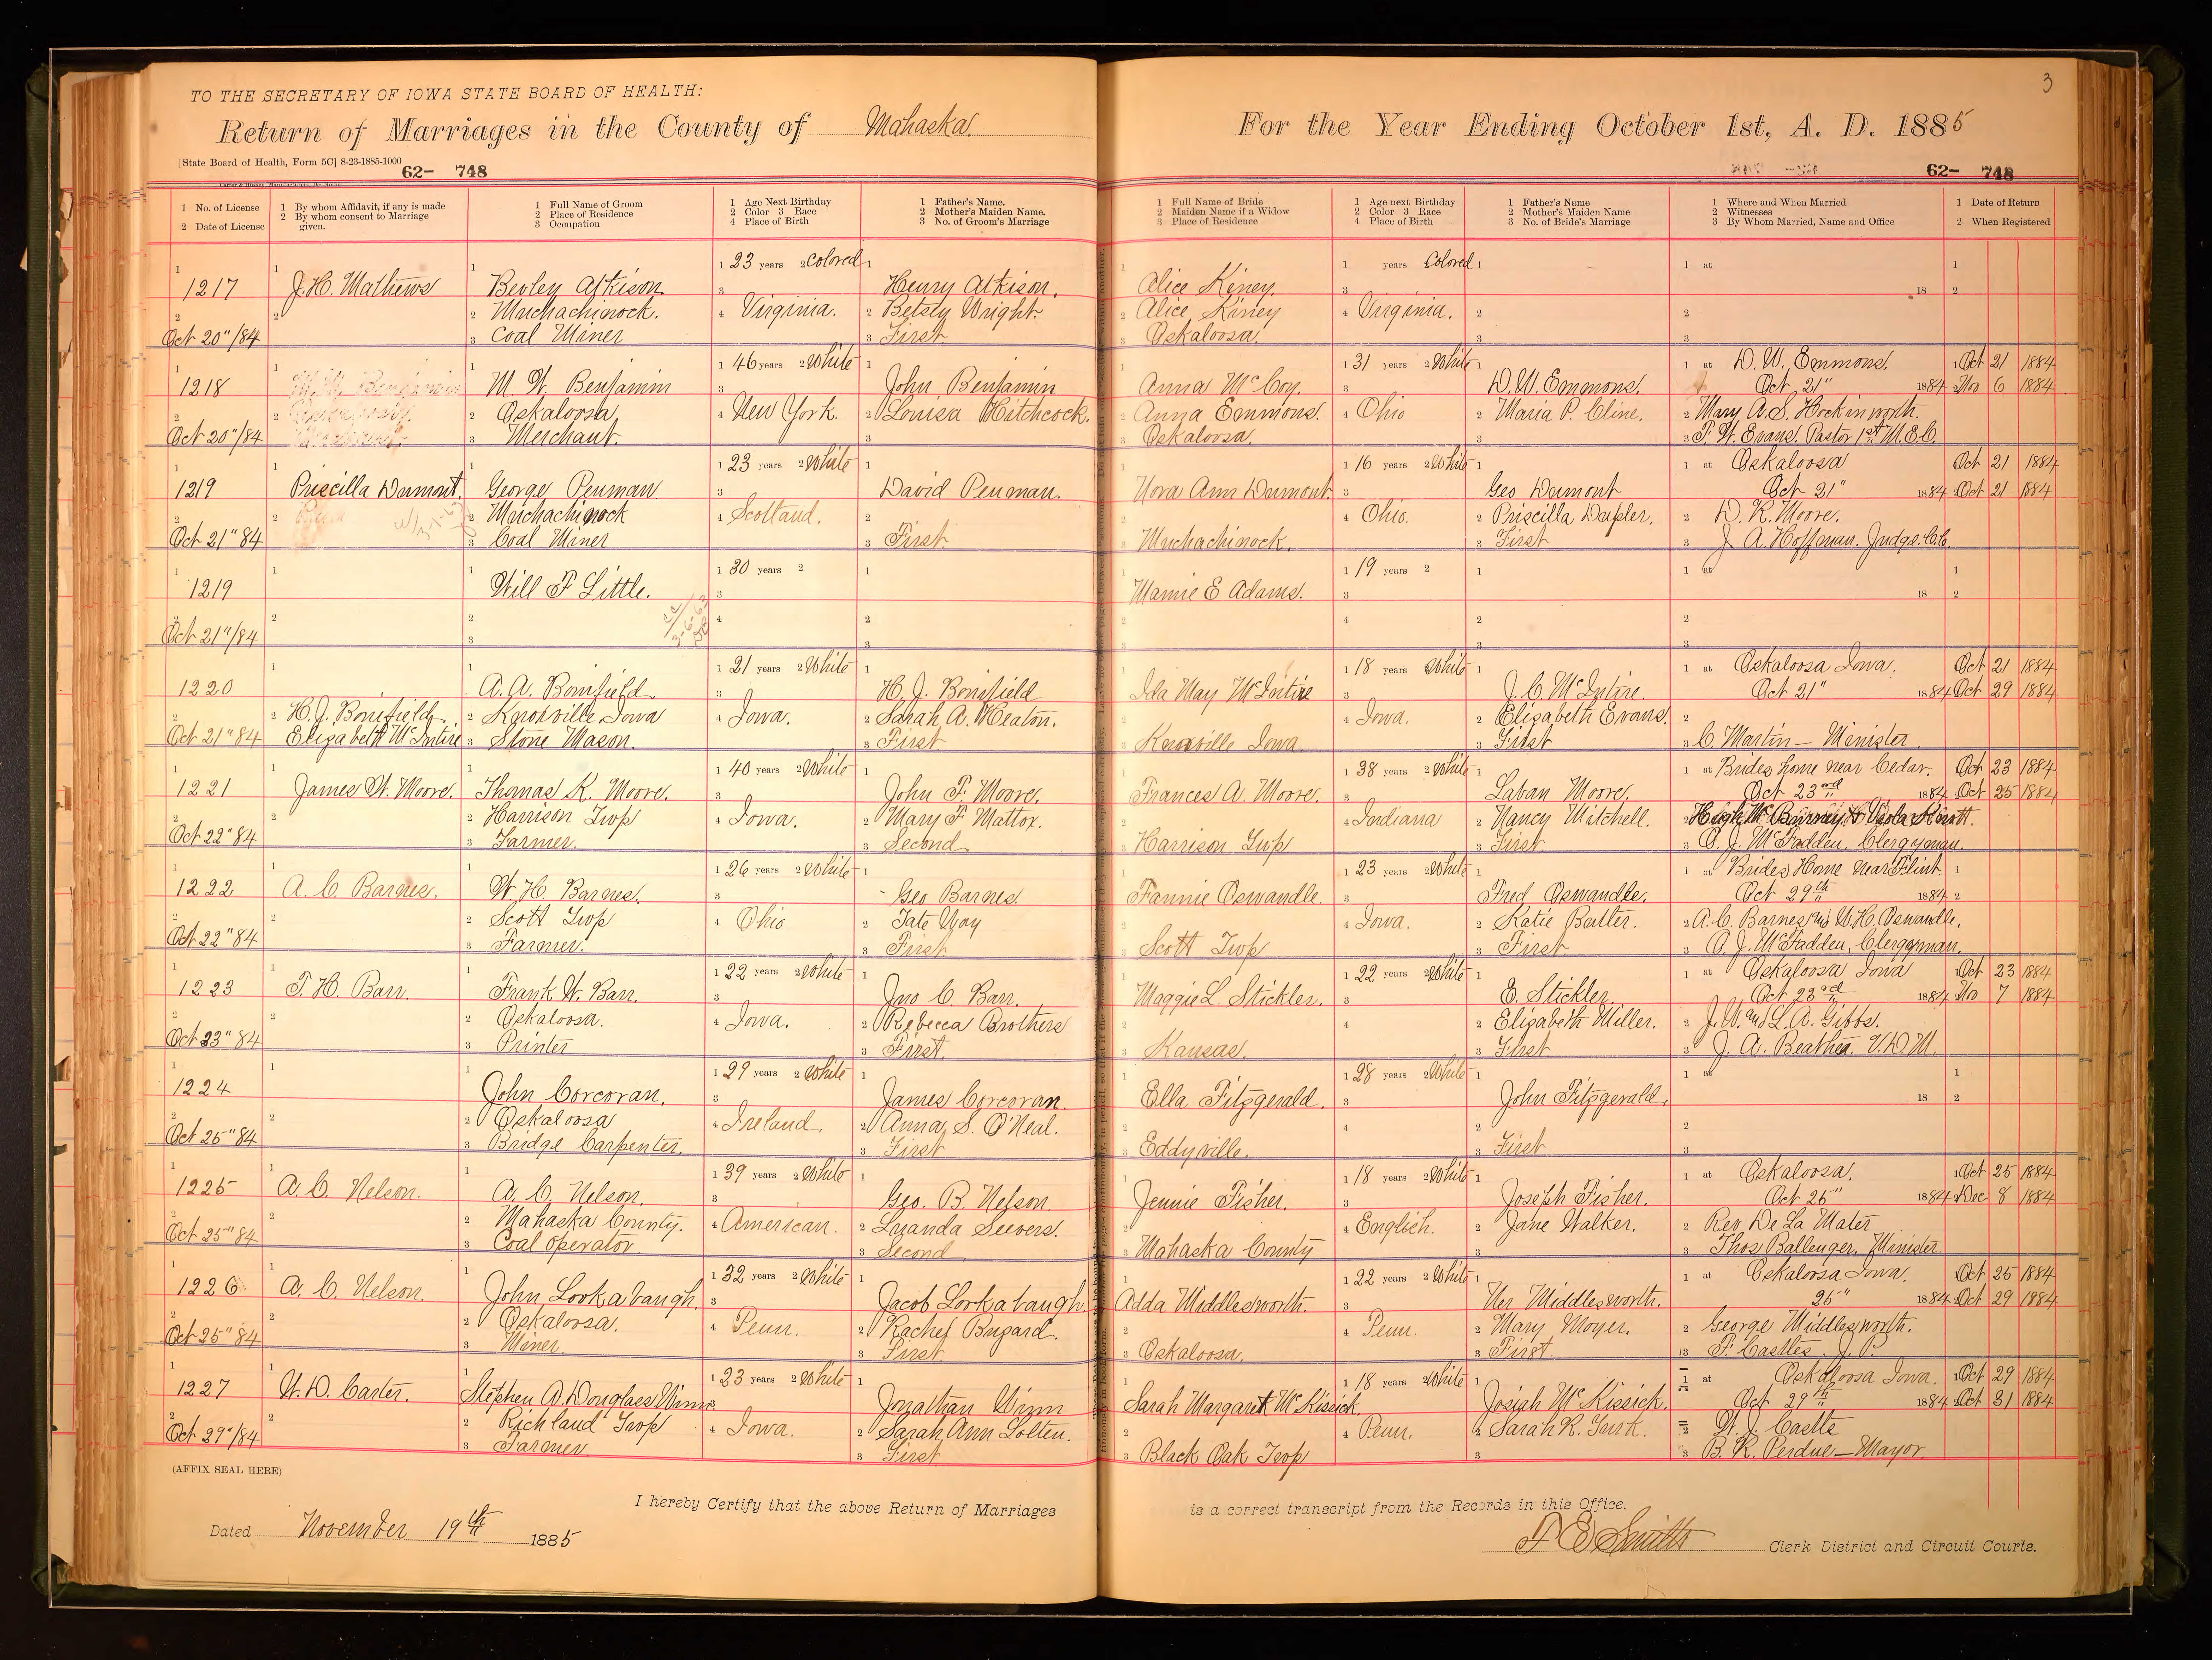 3
TO THE SECRETARY OF IOWA STATE BOARD OF HEALTH:
Return of Marriages in the County of Mahaska. For the Year Ending October 1st, A. D. 1885
[State Board of Health, Form 5C] 8-23-1885-1000
62- 748 62- 748
1 No. of License
2 Date of License
1 By whom Affidavit, if any is made
2 By whom consent to Marriage given.
1 Full Name of Groom
2 Place of Residence
3 Occupation
1 Age Next Birthday
2 Color 3 Race
4 Place of Birth
1 Father's Name.
2 Mother's Maiden Name.
3 No. of Groom's Marriage
1 Full Name of Bride
2 Maiden Name if a Widow
3 Place of Residence
1 Age next Birthday
2 Color 3 Race
4 Place of Birth
1 Father's Name
2 Mother's Maiden Name
3 No. of Bride's Marriage
1 Where and When Married
2 Witnesses
3 By Whom Married, Name and Office
1 Date of Return
2 When Registered
1217
Oct 20"/84
J. H. Mathews
Bevley Atkison
Muchachinock.
Coal Miner
23 years Colored
Virginia.
Henry Atkison.
Betsey Wright.
First
Alice Kiney.
Alice Kiney
Oskaloosa.
years Colored
Virginia.
at
18
1218
Oct 20"/84
M. W. Benjamin
M. W. Benjamin
Oskaloosa,
Merchant.
46 years White
New York.
John Benjamin
Louisa Hitchcock.
Anna McCoy.
Anna Emmons.
Oskaloosa.
31 years White
Ohio
D. W. Emmons.
Maria P. Cline.
at D. W. Emmons.
Oct, 21" 1884
Mary A. S. Hockinworth.
F. W. Evans. Pastor 1st M. E. C.
Oct 21 1884
Nov 6 1884
1219
Oct 21" 84
Priscilla Dermont.
George Penman
Muchachinock
Coal Miner
23 years White
Scotland.
David Penman.
First
Nora Ann Dermont
Muchachinock.
16 years White
Ohio.
Geo Dermont
Priscilla
First
at Oskaloosa
Oct 21" 1884
D. K. Moore.
J. A. Hoffman. Judge. C.C.
Oct 21 1884
Oct 21 1884
1219
Oct 21"/84
Will F Little.
3-6-63
30 years
Mamie E Adams.
19 years
at
18
1220
Oct 21" 84
H. J. Bonifield
Elizabeth McIntire
A. A. Bonifield
Knoxville Iowa
Stone Mason.
21 years White
Iowa.
H. J. Bonifield
Sarah A. Heaton.
First
Ida May McIntire
Knoxville Iowa
18 years White
Iowa.
J. C McIntire
Elizabeth Evans.
First
at Oskaloosa Iowa.
Oct 21" 1884
C. Martin — Minister
Oct 21 1884
Oct 29 1884
1221
Oct 22" 84
James W. Moore.
Thomas K. Moore.
Harrison Twp
Farmer.
40 years White
Iowa.
John F. Moore.
Mary F. Mattox.
Second
Frances A. Moore.
Harrison Twp
38 years White
Indiana
Laban Moore.
Nancy Mitchell.
First
at Brides home near Cedar.
Oct 23rd 1884
Hugh
A. J. McFadden, Clergyman.
Oct 23 1884
Oct 25 1884
1222
Oct 22" 84
A. C Barnes.
W. H. Barnes.
Scott Twp
Farmer.
26 years White
Ohio
Geo Barnes.
Tate
First
Fannie Oswandle.
Scott Twp
23 years White
Iowa.
Fred Oswandle.
Katie Balter.
First
at Brides Home near Flint.
Oct 29th 1884
A. C. Barnes and W. H. Oswandle,
A. J. McFadden, Clergyman.
1223
Oct 23" 84
T. H. Barr.
Frank W. Barr.
Oskaloosa.
Printer
22 years White
Iowa.
Jno C. Barr.
Rebecca Brothers
First
Maggie L. Stickler.
Kansas.
22 years White
E. Stickler
Elizabeth Miller.
First
at Oskaloosa Iowa
Oct 23rd 1884
J. W. and L. A. Gibbs.
J. A. V. D. M.
Oct 23 1884
Nov 7 1884
1224
Oct 25" 84
John Corcoran.
Oskaloosa
Bridge Carpenter.
29 years White
Ireland.
James Corcoran.
Anna S. O'Neal.
First
Ella Fitzgerald.
Eddyville.
28 years White
John Fitzgerald,
First
at
18
1225
Oct 25" 84
A. C. Nelson.
A. C. Nelson.
Mahaska County.
Coal operator
39 years White
American.
Geo. B. Nelson.
Luanda Seevers.
Second
Jennie Fisher.
Mahaska County
18 years White
English.
Joseph Fisher.
Jane Walker.
at Oskaloosa.
Oct 25" 1884
Rev De La Mater
Thos Ballenger. Minister
Oct 25 1884
Dec 8 1884
1226
Oct 25" 84
A. C. Nelson.
John Lookabaugh.
Oskaloosa.
Miner.
32 years White
Penn.
Jacob Lookabaugh.
Rachel
First
Adda Middlesworth.
Oskaloosa.
22 years White
Penn.
Ner Middlesworth.
Mary Moyer.
First
at Oskaloosa Iowa.
25" 1884
George Middlesworth.
F. Castles. J. P.
Oct 25 1884
Oct 29 1884
1227
Oct 29"/84
W. D. Carter.
Stephen A Douglass Winn
Richland Twp
Farmer
23 years White
Iowa.
Jonathan Winn
Sarah Ann Lolten.
First
Sarah Margaret McKissick
Black Oak Twp
18 years White
Penn.
Josiah McKissick.
Sarah R. Turk.
at Oskaloosa Iowa.
Oct 29th 1884
W. J. Castle
B. R. Perdue — Mayor
Oct 29 1884
Oct 31 1884
(AFFIX SEAL HERE)
I hereby Certify that the above Return of Marriages is a correct transcript from the Records in this Office.
Dated November 19th 1885
Smith Clerk District and Circuit Courts.